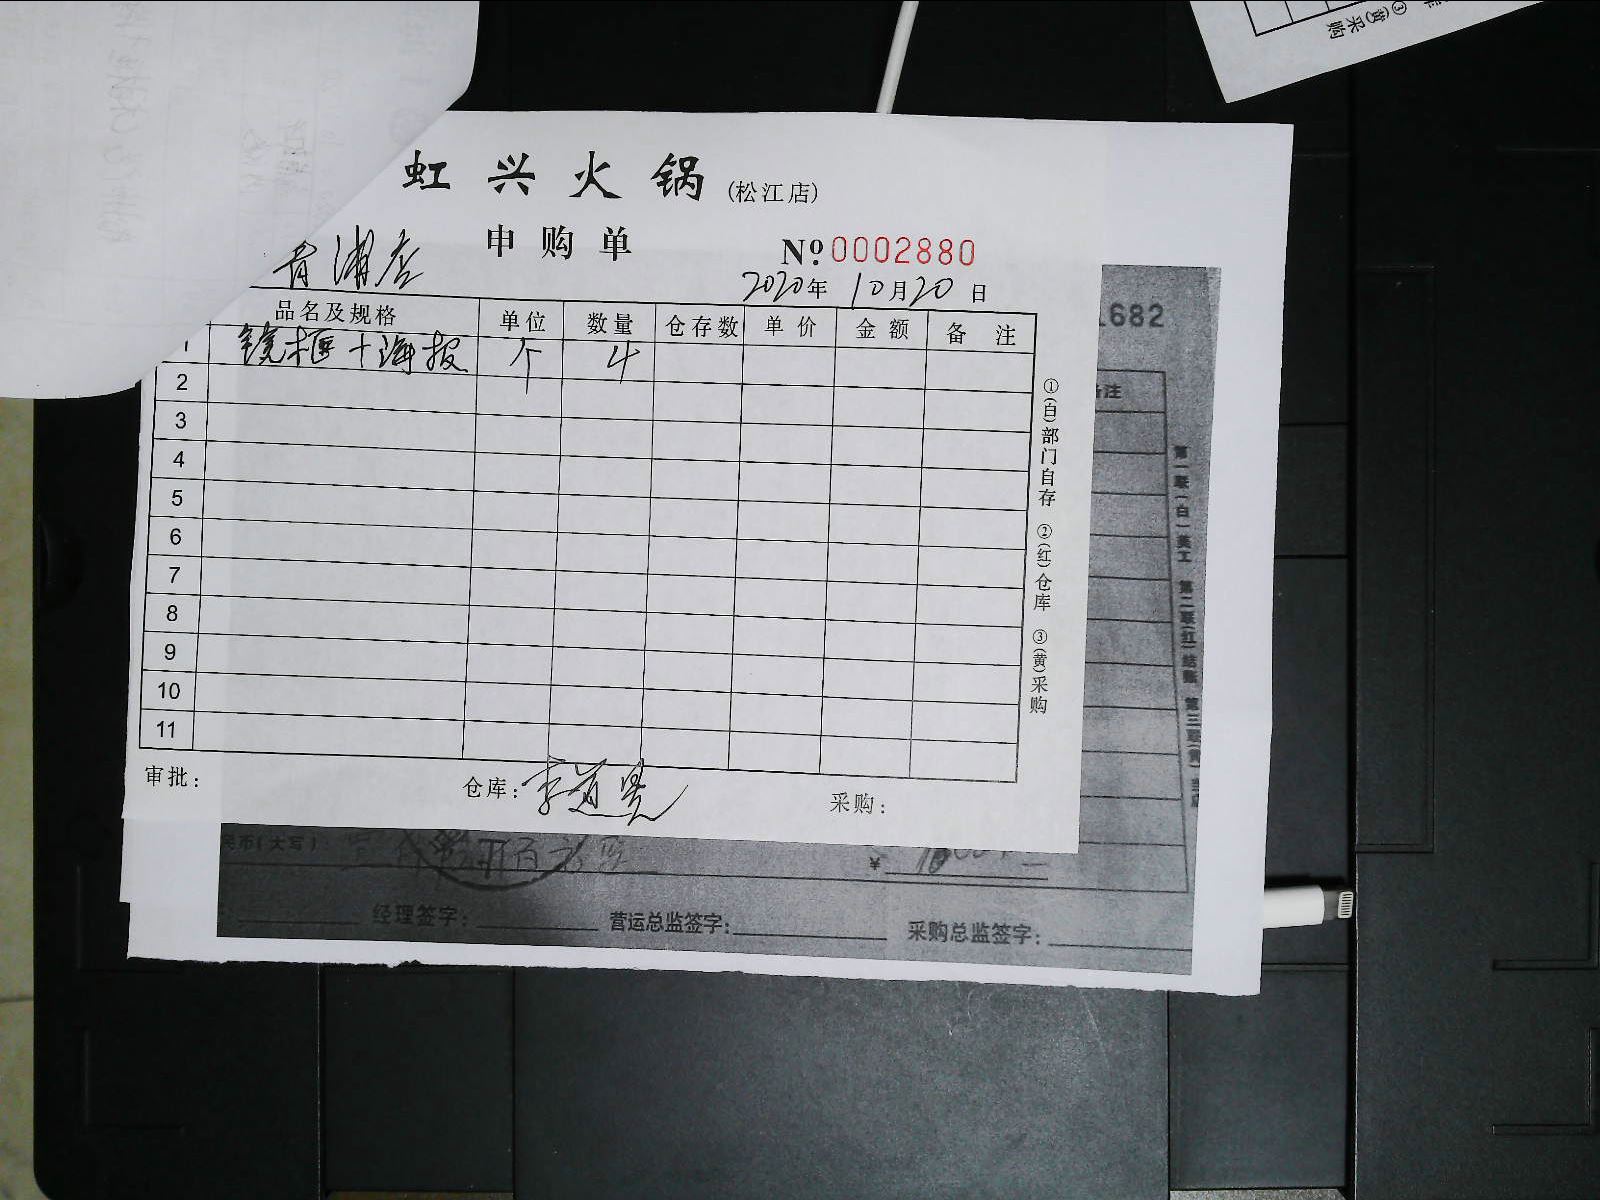 虹兴火锅(松江店)
申购单
№0002880
青浦店
2020年10月20日
品名及规格 单位 数量 仓存数 单价 金额 备注
1 镜框+海报 个 4
2
3
4
5
6
7
8
9
10
11
①(白)部门自存 ②(红)仓库 ③(黄)采购
审批: 仓库: 采购:
682
备注
第一联(白)美工 第二联(红)结账 第三联(黄)
民币(大写):
¥
经理签字: 营运总监签字: 采购总监签字:
③(黄)采购